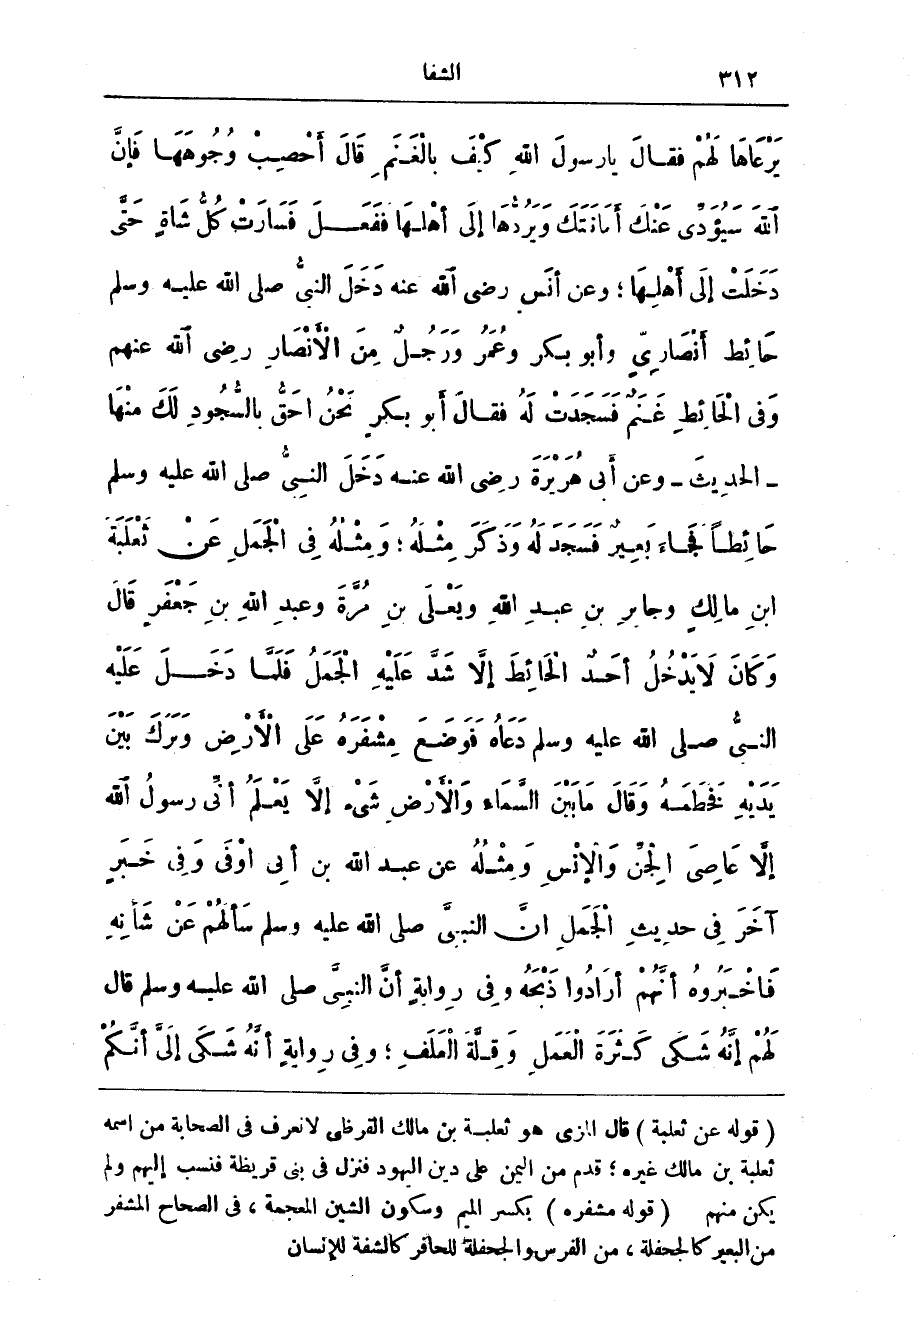 ٣١٢
الشفا
يَرْعَاهَا لَهُمْ فقـالَ يارسولَ اللهِ كَيْفَ بالْغَـنَمِ قَالَ أَحْصِبْ وُجُوهَهَـا فَإِنَّ
اللهَ سَيُؤَدِّى عَنْكَ أَمَانَتَكَ وَيَرُدُّهَا إلَى أهْلِـهَا فَفَعَــلَ فَسَارَتْ كُلُّ شَاةٍ حَتَّى
دَخَلَتْ إلَى أَهْلِـهَا ؛ وعن أنَس رضى اللهُ عنه دَخَلَ النبىُّ صلى الله عليـه وسلم
حَائِطَ أَنْصَارِيٍّ وأبو بـكر وعُمَرُ ورَجُـلٌ مِنَ الْأَنْصَارِ رضى اللهُ عنهم
وَفى الْحَائِطِ غَـنَمٌ فَسَجَدَتْ لَهُ فقـالَ أبو بـكرٍ نَحْنُ احَقُّ بالسُّجُودِ لَكَ مِنْهَا
ـ الحديثَ ـ وعن أبى هُرَيْرَةَ رضى الله عنـه دَخَلَ النـبىُّ صلى الله عليه وسلم
حَائِطـاً فَجَـاءَ بَعِـيرٌ فَسَجَدَ لَهُ وَذَكَرَ مِثْـلَهُ ؛ وَمِثْـلُهُ فِى الْجَمَلِ عَنْ ثَعْلَبَةَ
ابنِ مالِكٍ وجابِرِ بنِ عبـدِ اللهِ ويَعْـلَى بنِ مُرَّةَ وعبدِ اللهِ بنِ جَعْفَرٍ قَالَ
وَكَانَ لَايَدْخُلُ أحَـدٌ الْحَائِطَ إلَّا شَدَّ عَلَيْهِ الْجَمَلُ فَلَمَّـا دَخَــلَ عَلَيْهِ
النـبىُّ صـلى الله عليه وسلم دَعَاهُ فَوَضَـعَ مِشْفَرَهُ عَلَى الْأَرْضِ وَبَرَكَ بَيْنَ
يَدَيْهِ فَخَطَمَـهُ وَقَالَ مَابَيْنَ السَّمَاءِ وَالْأَرْضِ شَىْءٌ إلَّا يَعْـلَمُ أنِّى رسولُ اللهِ
إلَّا عَاصِىَ الْجِنِّ وَالْإِنْسِ وَمِثْـلُهُ عن عبـد الله بن أبى اوْفَى وَفِى خَـبَرٍ
آخَرَ فِى حديثِ الْجَمَلِ انَّ النبىَّ صلى الله عليه وسلم سَألَهُمْ عَنْ شَأنِهِ
فَاخْـبَرُوهُ أنَّهُمْ أرَادُوا ذَبْحَهُ وفِى روايةٍ أنَّ النبىَّ صلى الله عليـه وسلم قال
لَهُمْ إنَّهُ شَـكَى كَـثْرَةَ الْعَمَلِ وَقِـلَّةَ الْعَلَفِ ؛ وفِى روايةٍ أنَّهُ شَـكَى إلَىَّ أنَّـكُمْ
( قوله عن ثعلبة ) قال المزى هو ثعلبـة بن مالك القرظى لانعرف فى الصحابة من اسمه
ثعلبة بن مالك غيره ؛ قدم من اليمن على دين اليهود فنزل فى بنى قريظة فنسب إليهم ولم
يكن منهم ( قوله مشفره ) بكسر الميم وسكون الشين المعجمة ، فى الصحاح المشفر
من البعير كالجحفلة ، من الفرس والجحفلة للحافر كالشفة للإنسان